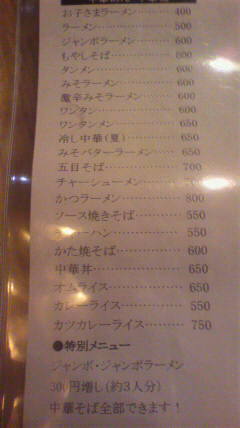 お子さまラーメン………400
ラーメン………………500
ジャンボラーメン………600
もやしそば……………600
タンメン………………600
みそラーメン…………600
激辛みそラーメン………600
ワンタン………………600
ワンタンメン…………650
冷し中華(夏)…………650
みそバターラーメン……650
五目そば………………700
チャーシューメン………
かつラーメン…………800
ソース焼きそば………550
ハン…………550
かた焼そば……………600
中華丼…………………650
オムライス……………650
カレーライス…………550
カツカレーライス………750
●特別メニュー
ジャンボ・ジャンボラーメン
300円増し(約3人分)
中華そば全部できます!